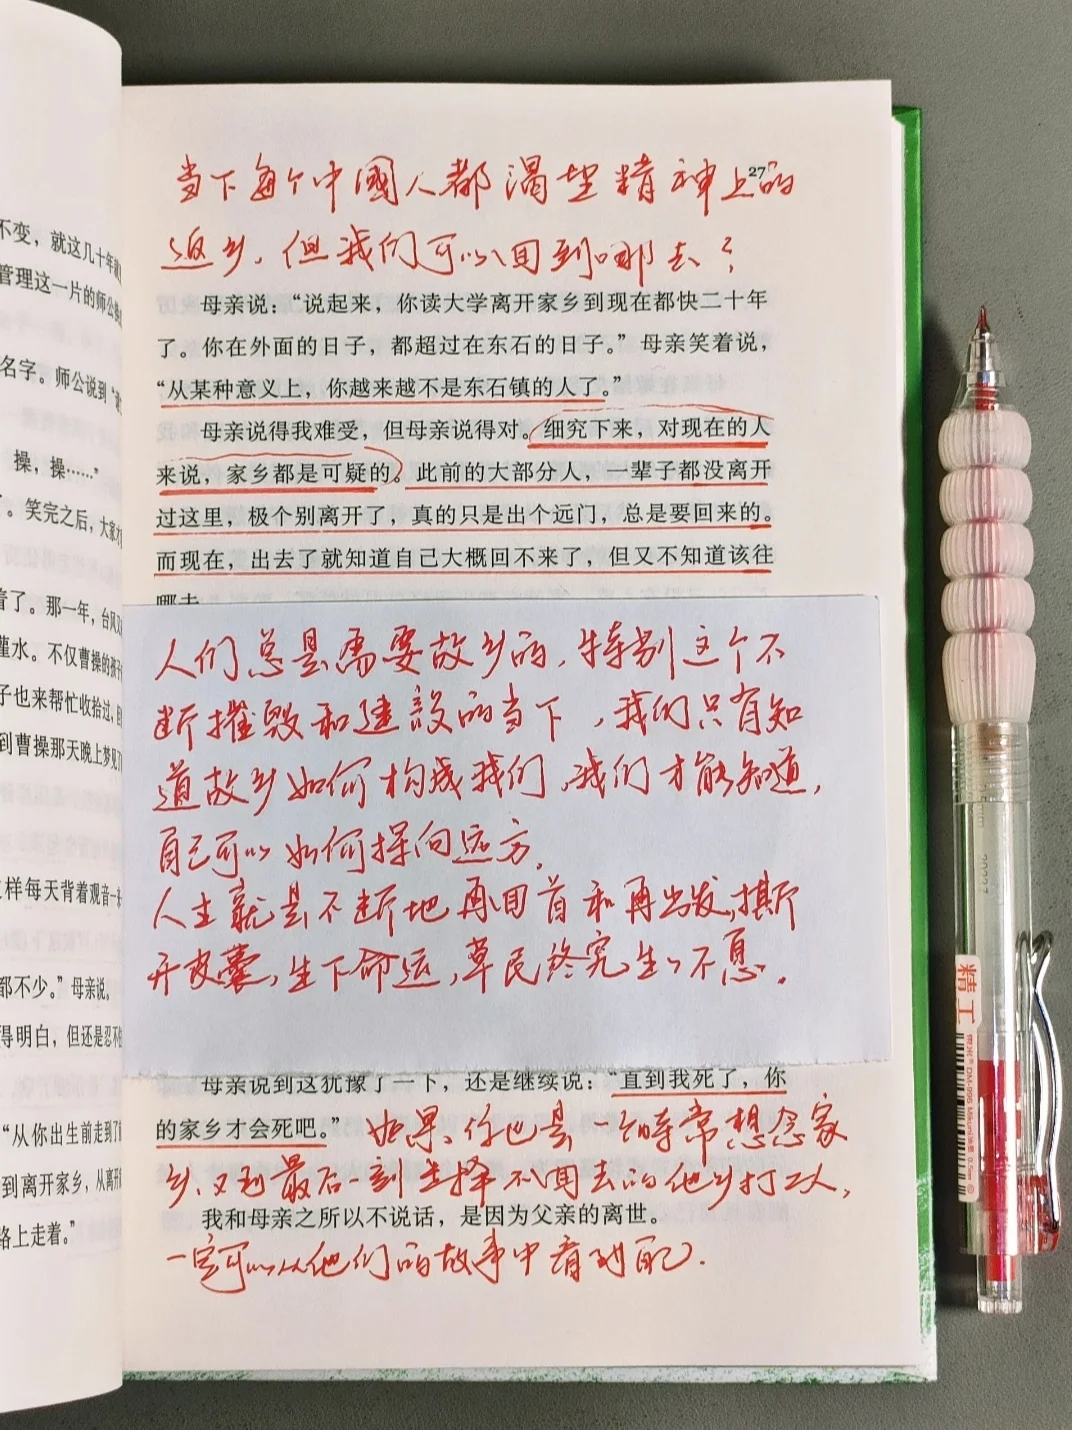 不变，就这几十年
管理这一片的师公
名字。师公说到“
操，操……”
。笑完之后，大家
着了。那一年，台风
灌水。不仅曹操的孩子
子也来帮忙收拾过，
到曹操那天晚上梦见了
样每天背着观音一
都不少。”母亲说。
得明白，但还是忍不
“从你出生前走到了
到离开家乡，从离开
路上走着。”
27
当下每个中國人都渴望精神上的
返乡，但我们可以回到哪去？
母亲说：“说起来，你读大学离开家乡到现在都快二十年
了。你在外面的日子，都超过在东石的日子。”母亲笑着说，
“从某种意义上，你越来越不是东石镇的人了。”
母亲说得我难受，但母亲说得对。细究下来，对现在的人
来说，家乡都是可疑的。此前的大部分人，一辈子都没离开
过这里，极个别离开了，真的只是出个远门，总是要回来的。
而现在，出去了就知道自己大概回不来了，但又不知道该往
哪去
人们总是需要故乡的，特别这个不
断摧毁和建設的当下，我们只有知
道故乡如何构成我们，我们才能知道，
自己可以如何探向远方。
人生就是不断地再回首和再出发，撕
开皮囊，生下命运，草民终究生生不息。
母亲说到这犹豫了一下，还是继续说：“直到我死了，你
的家乡才会死吧。”如果，你也是一个时常想念家
乡、又到最后一刻选择不回去的他乡打工人，
我和母亲之所以不说话，是因为父亲的离世。
一定可以从他们的故事中看到自己.
精工
DM-996
0.5mm